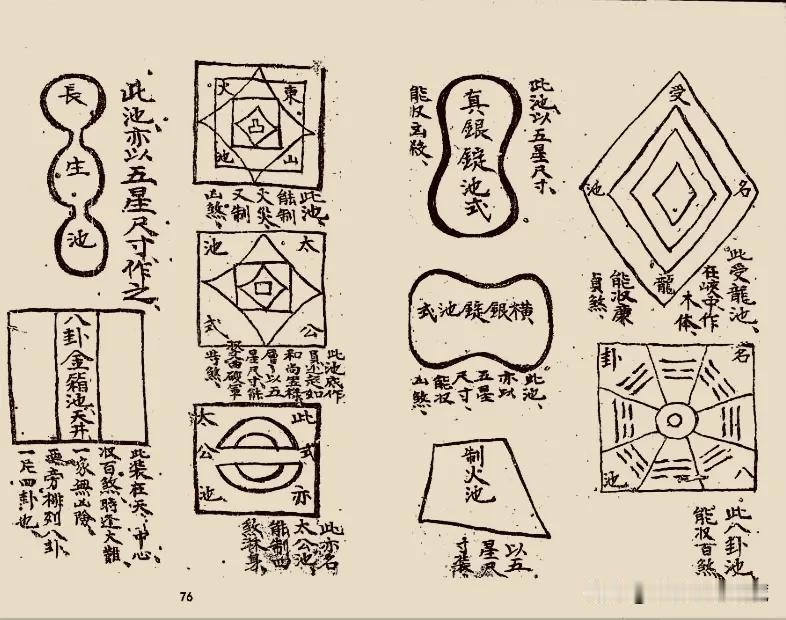 受
名
龍
池
此受龍池、
在峽中作
木体、
能收廉
貞煞、
名
八
卦
池
此八卦池
能收百煞
此池以五星尺寸、
真銀錠池式
能收凶殺、
橫銀錠池式
此池、
亦以
五星
尺寸、
能收
凶煞、
制火池
以五
星尺
寸裝
東
山
火
池
凸
此池、
能制
火災
又制
凶煞、
太
公
池
式
此池底作
和尚笠樣
以五
星尺寸能
收文曲破軍
等煞、
此
式
亦
太
公
池
此亦名
太公池、
能制四
煞淋身、
此池亦以五星尺寸作之、
長
生
池
八卦金箱池天井
此裝在天 中心、
收百煞時逢大難
一家無凶險、
旁排列八卦
一片四卦也、
76